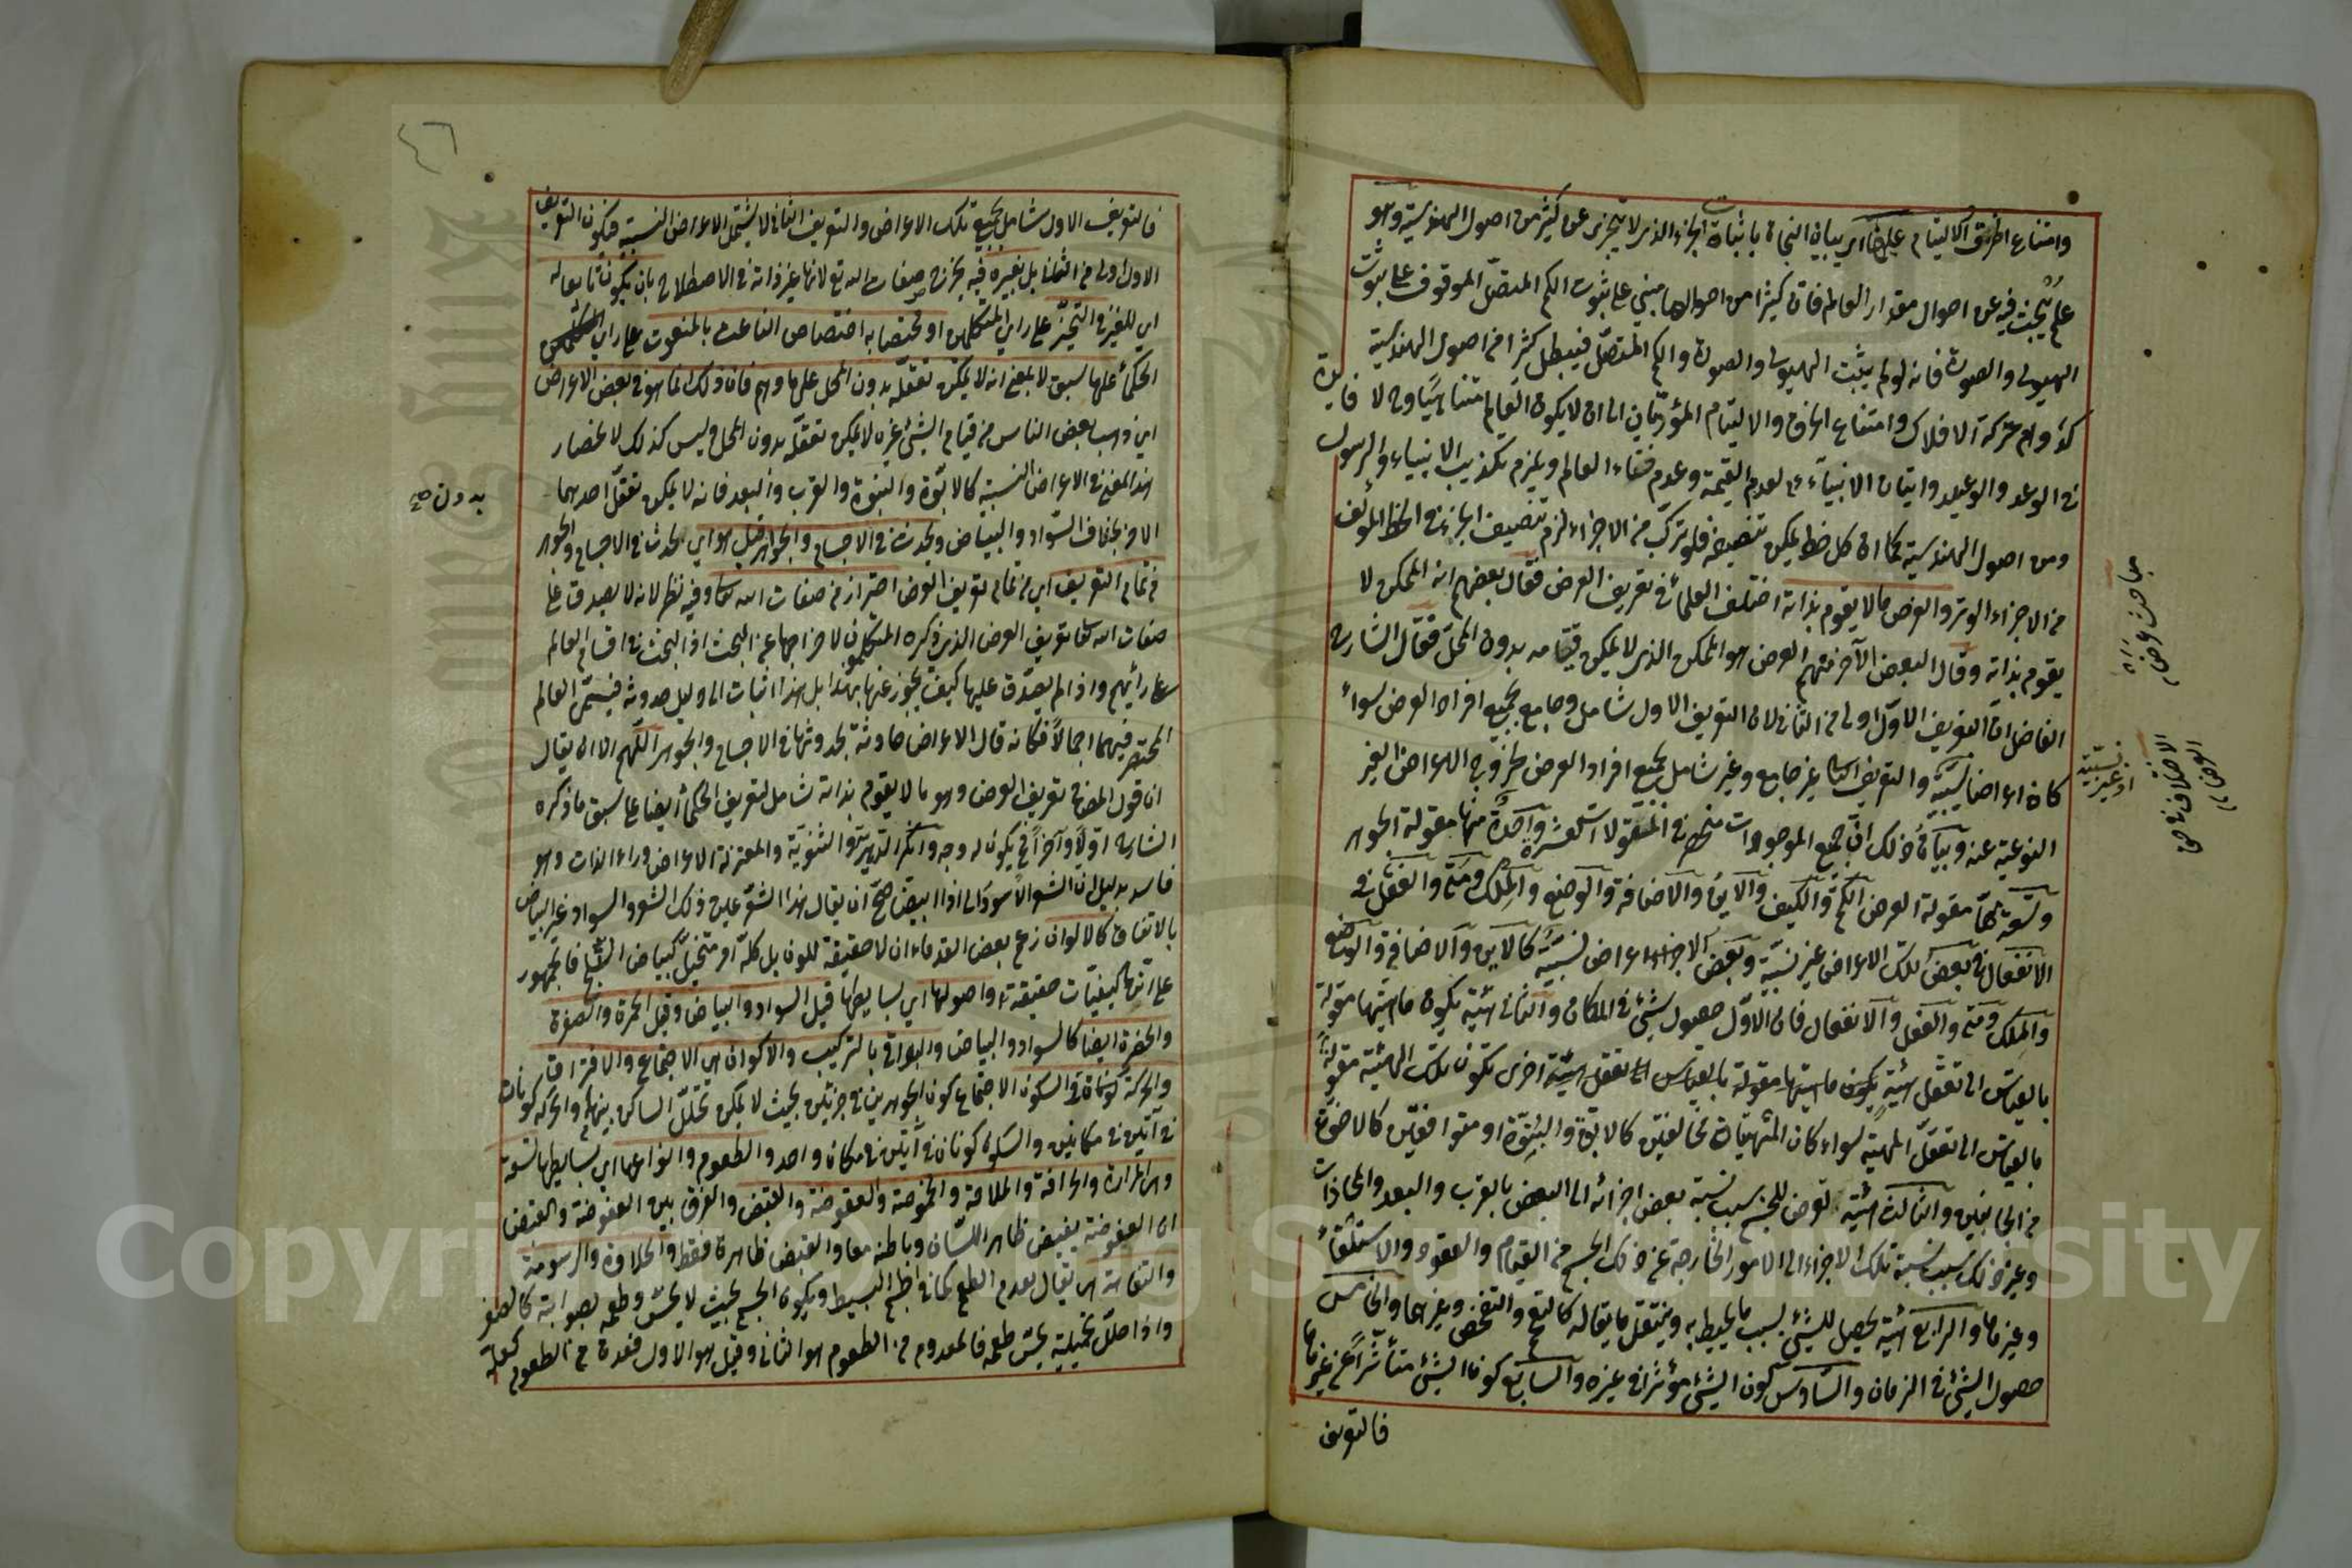 وامتناع الخرق والالتيام عليها اى بيان النجاة باثبات الجزء الذى لا يتجزى عن كثير من اصول الهندسية وهو
علم يبحث فيه عن احوال مقدار العالم فان كثيرا من اصولها مبنى على ثبوت الكم المتصل الموقوف على ثبوت
الهيولى والصورة فانه لو لم يثبت الهيولى والصورة والكم المتصل فيبطل كثيرا من اصول الهندسية
كدوام حركة الافلاك وامتناع الخرق والالتيام المؤديان الى ان لا يكون العالم متناهيا وح لا فايدة
فى الوعد والوعيد واتيان الانبياء لعدم القيمة وعدم فناء العالم ويلزم تكذيب الانبياء والرسول
ومن اصول الهندسية كما ان كل خط يمكن تنصيفه فلو تركب من الاجزاء لزم تنصيف الجزء فى الخط المؤلف
من الاجزاء الوتر والعرض ما لا يقوم بذاته اختلف العلماء فى تعريف العرض فقال بعضهم انه الممكن لا
يقوم بذاته وقال البعض الآخر منهم العرض هو الممكن الذى لا يمكن قيامه بدون المحل فقال الشارح
الفاضل ان التعريف الاول اولى من الثانى لان التعريف الاول شامل وجامع بجميع افراد العرض سواء
كان اعراضا نسبية والتعريف الثانى غير جامع وغير شامل بجميع افراد العرض لخروج الاعراض الغير
النوعية عنه وبيان ذلك ان جميع الموجودات منحصر فى المقولات العشرة واحدة منها مقولة الجوهر
وتسعة منها مقولة العرض الكم والكيف والاين والاضافة والوضع والملك ومتى والفعل و
الانفعال فبعض تلك الاعراض غير نسبية وبعض الاجزاء اعراض نسبية كالاين والاضافة والوضع
والملك ومتى والفعل والانفعال فان الاول حصول شئ فى المكان والثانى هيئة يكون ماهيتها مقولة
بالقياس الى تعقل هيئة يكون ماهيتها مقولة بالقياس الى تعقل هيئة اخرى تكون تلك الهيئة مقولة
بالقياس الى تعقل المهية سواء كان المتهيئان مخالفين كالابوة والبنوة او متوافقين كالاخوة
من الجانبين والثالث هيئة تعرض للجسم بسبب نسبة بعض اجزائه الى البعض بالقرب والبعد والمحاذات
وغير ذلك بسبب نسبة تلك الاجزاء الى الامور الخارجة عن ذلك الجسم من القيام والقعود والاستلقاء
وغيرها والرابع هيئة يحصل للشئ بسبب ما يحيط به وينتقل بانتقاله كالتعمم والتقمص وغيرهما والخامس
حصول الشئ فى الزمان والسادس كون الشئ مؤثرا فى غيره والسابع كون الشئ متأثرا عن غيره
فالتعريف
مباحث عرض
نسبية
او غير نسبية
فالتعريف الاول شامل بجميع تلك الاعراض والتعريف الثانى لا يشتمل الاعراض النسبية فيكون التعريف
الاول اولى من الثانى بل بغيره فيه يخرج صفات الله تع لانها غير ذاته فى الاصطلاح بان يكون تابعا له
اى للغير فى التحيز على راى المتكلمين او مختصا به اختصاص الناعت بالمنعوت على راى
الحكماء على ما سبق لا بمعنى انه لا يمكن تعقله بدون المحل على ما وهم فان ذلك انما هو فى بعض الاعراض
اى ذهب بعض الناس من قيام الشئ بغيره لا يمكن تعقله بدون المحل وليس كذلك لانحصار
هذا المعنى فى الاعراض النسبية كالابوة والبنوة والقرب والبعد فانه لا يمكن تعقل احدهما
بدون صح
الاخر بخلاف السواد والبياض ويحدث فى الاجسام والجواهر قيل هو اى يحدث فى الاجسام والجواهر
من تمام التعريف اى من تمام تعريف العرض احتراز من صفات الله تعالى وفيه نظر لانه لا يصدق على
صفات الله تعالى تعريف العرض الذى ذكره المتكلمون لاخراجها عن البحث اذ البحث فى اقسام العالم
على رأيهم واذا لم يصدق عليها كيف يجوز عنها بهذا بل هذا اثبات الى دليل حدوثه فيتم العالم
المختصر فيهما اجمالا فكانه قال الاعراض حادثة بحدوثها فى الاجسام والجواهر اللهم الا ان يقال
ان قول المصنف تعريف العرض وهو ما لا يقوم بذاته شامل لتعريف الحكماء ايضا على سبق ما ذكره
الشارح اولا وآخرا فيكون له وجه وانكر الدهرية والثنوية والمعتزلة الاعراض وراء الذات وهو
فاسد بدليل ان الشعر الاسود اذا ابيض صح ان يقال هذا الشعر عين ذلك الشعر والسواد غير البياض
بالاتفاق كالالوان زعم بعض القدماء ان لا حقيقة للون بل كله امر متخيل كبياض الثلج فالجمهور
على انها كيفيات حقيقة واصولها اى بسايطها قيل السواد والبياض وقيل الحمرة والصفرة
والخضرة ايضا كالسواد والبياض والبواقى بالتركيب والاكوان هى الاجتماع والافتراق
والحركة والسكون الاجتماع كون الجوهرين فى حيزين بحيث لا يمكن تخلل الساكن بينهما والحركة كونان
فى آنين فى مكانين والسكون كونان فى آنين فى مكان واحد والطعوم وانواعها اى بسايطها تسعة
وهى المرارة والحرافة والملاحة والحموضة والعفوصة والقبض والفرق بين العفوصة والقبض
ان العفوصة يقبض ظاهر اللسان وباطنه معا والقبض ظاهره فقط والحلاوة والدسومة
والتفاهة هى يقال لعدم الطعم كما فى الجسم البسيط ويكون الجسم بحيث لا يحس وطعمه لصوابته كالصفر
واذا حلل بحيلة يحس طعمه فالمعدوم من الطعوم هو الثانى وقيل هو الاول فعده من الطعوم